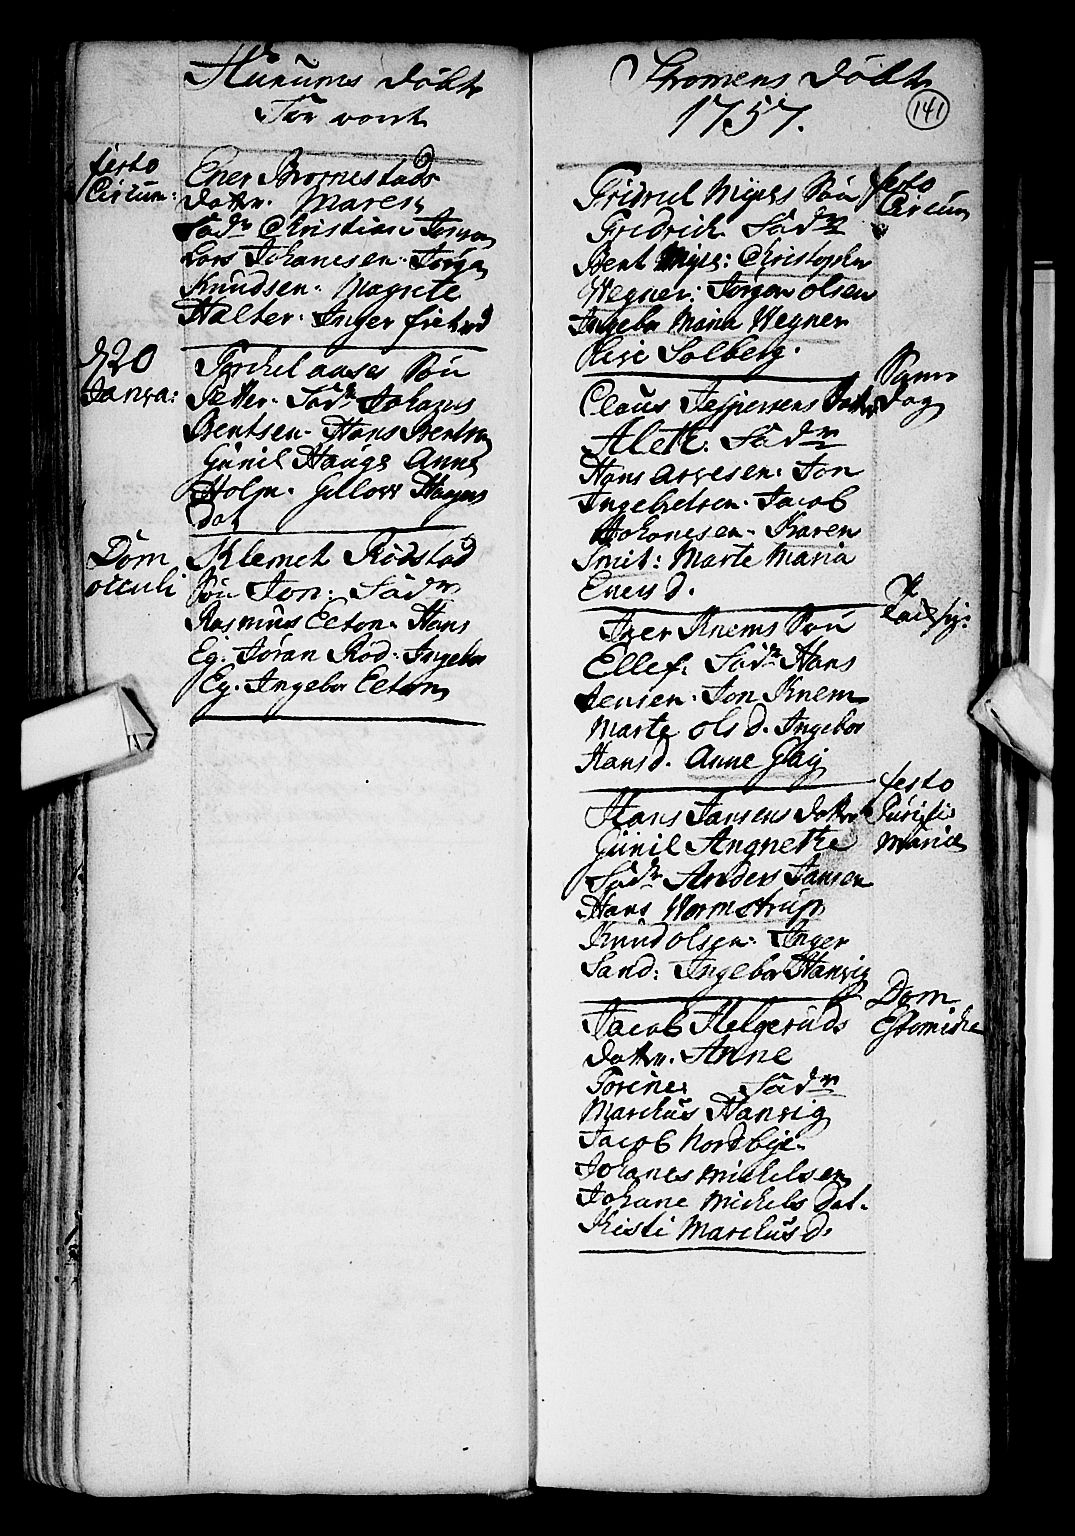 Hurums Døbte
festo
Circum:
Ener Bromestads
Dotter. Maren
Fadr Christian
Lars Johannesen. Jørgen
Knudsen. Magrete
Halter. Inger
d 20
Janva:
Torkel aases Søn
Petter. Fadr Johanes
Bentsen. Hans Bentsen
Gunil Haugs Anne
Holm. Hagens
Dat
Dom
occuli
Klemet Rødstad
Søn Jon: Fadr
Rasmus Eeton. Hans
Eg. Jøran Rød. Ingebor
Eg. Ingebor Eeton
Stromens Døbte
1757.
141
festo
Circum
Fridrich Søn
Fridrich Fadr
Bent Christopher
Wegner: Jørgen olsen
Ingebor Maria Wegner
Solberg.
Dag
Claus Jespersens Dotter
Aleth. Fadr
Hans arvesen. Jon
Ingebretsen. Jacob
Johanesen. Karen
Smit: Marte Maria
Eners d.
Iver Knems Søn
Ellef. Fadr Hans
Jensen. Jon Knem
Marte ols d. Ingebor
Hans d. Anne
festo
Purific
Mariæ
Hans Jansens Dotter
Gunil Angnethe
Fadr Anders Jansen
Hans Wormstrup
Knud olsen. Inger
Sand: Ingebor Hanvig
Dom
Estomihi
Jacob Helgeruds
Dotter. Anne
Torine Fadr
Marckus Hanvig
Jacob Nordbye.
Johanes Mickelsen
Johane Mickels Dat.
Kisti Marckus d.